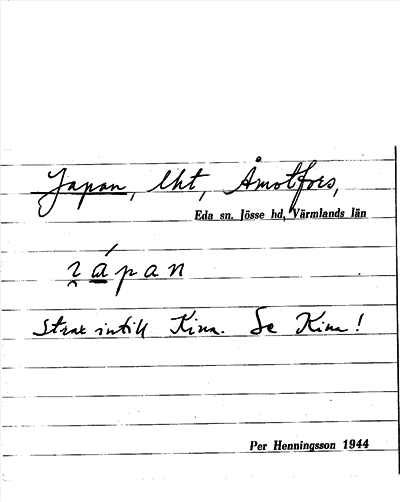 Japan, lht, Åmotfors,
Eda sn. Jösse hd, Värmlands län
i̯ápan
Strax intill Kina. Se Kina!
Per Henningsson 1944